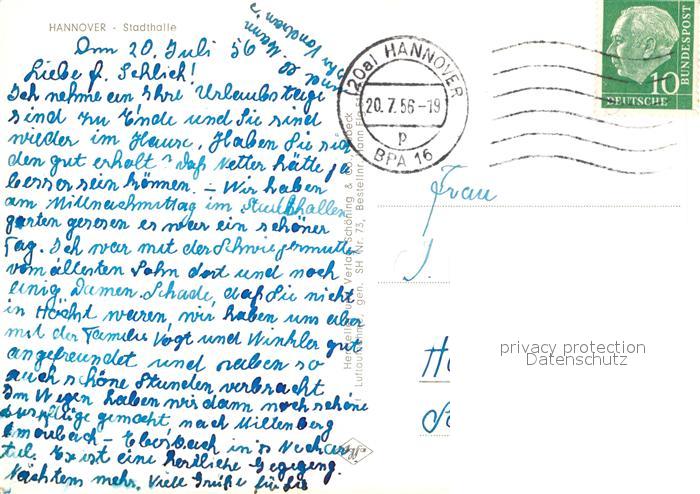 HANNOVER - Stadthalle
Den 20. Juli 56
Liebe f. Schlich!
Ich nehme ein Ihre Urlaubstage
sind zu Ende und Sie sind
wieder im Hause. Haben Sie sich
den gut erholt? Daß Wetter hätte ja
besser sein können. – Wir haben
am Mittnachmittag im Stadthallen
garten gesesen es war ein schöner
Tag. Ich war mit der Schwiegermutter
vom ältesten Sohn dort und noch
einig Damen. Schade, daß Sie nicht
in Höchst waren, wir haben uns aber
mit der Familie Vogt und Winkler gut
angefreundet und haben so
auch schöne Stunden verbracht
Im Wegen haben wir dann noch schöne
Ausflüge gemacht, nach Miltenberg
Amorbach – Ebersbach in's Neckar
tal. Es ist eine herrliche Gegegend.
Nächstens mehr. Viele Grüße für Sie
(20a) HANNOVER
20.7.56-19
p
BPA 16
10
DEUTSCHE
BUNDESPOST
Frau
J.
privacy protection
Datenschutz